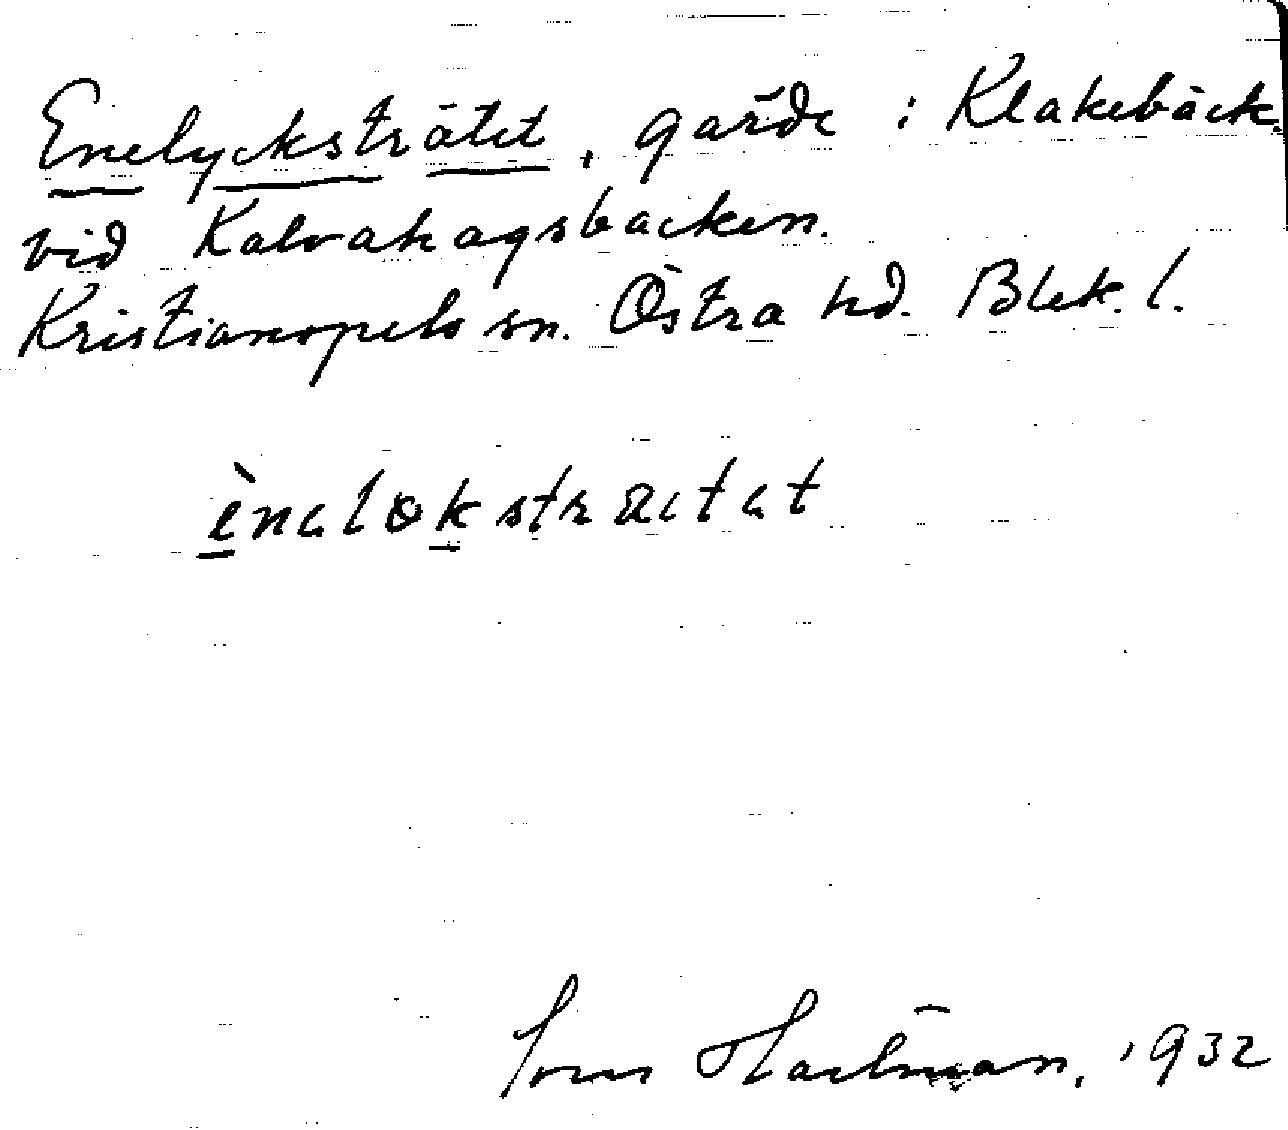 Enelycksträtet, gärde i Klakebäck
vid Kalvahagsbacken.
Kristianopels sn. Östra hd. Blek. l.
ènaløkstrætat
Hartman, 1932